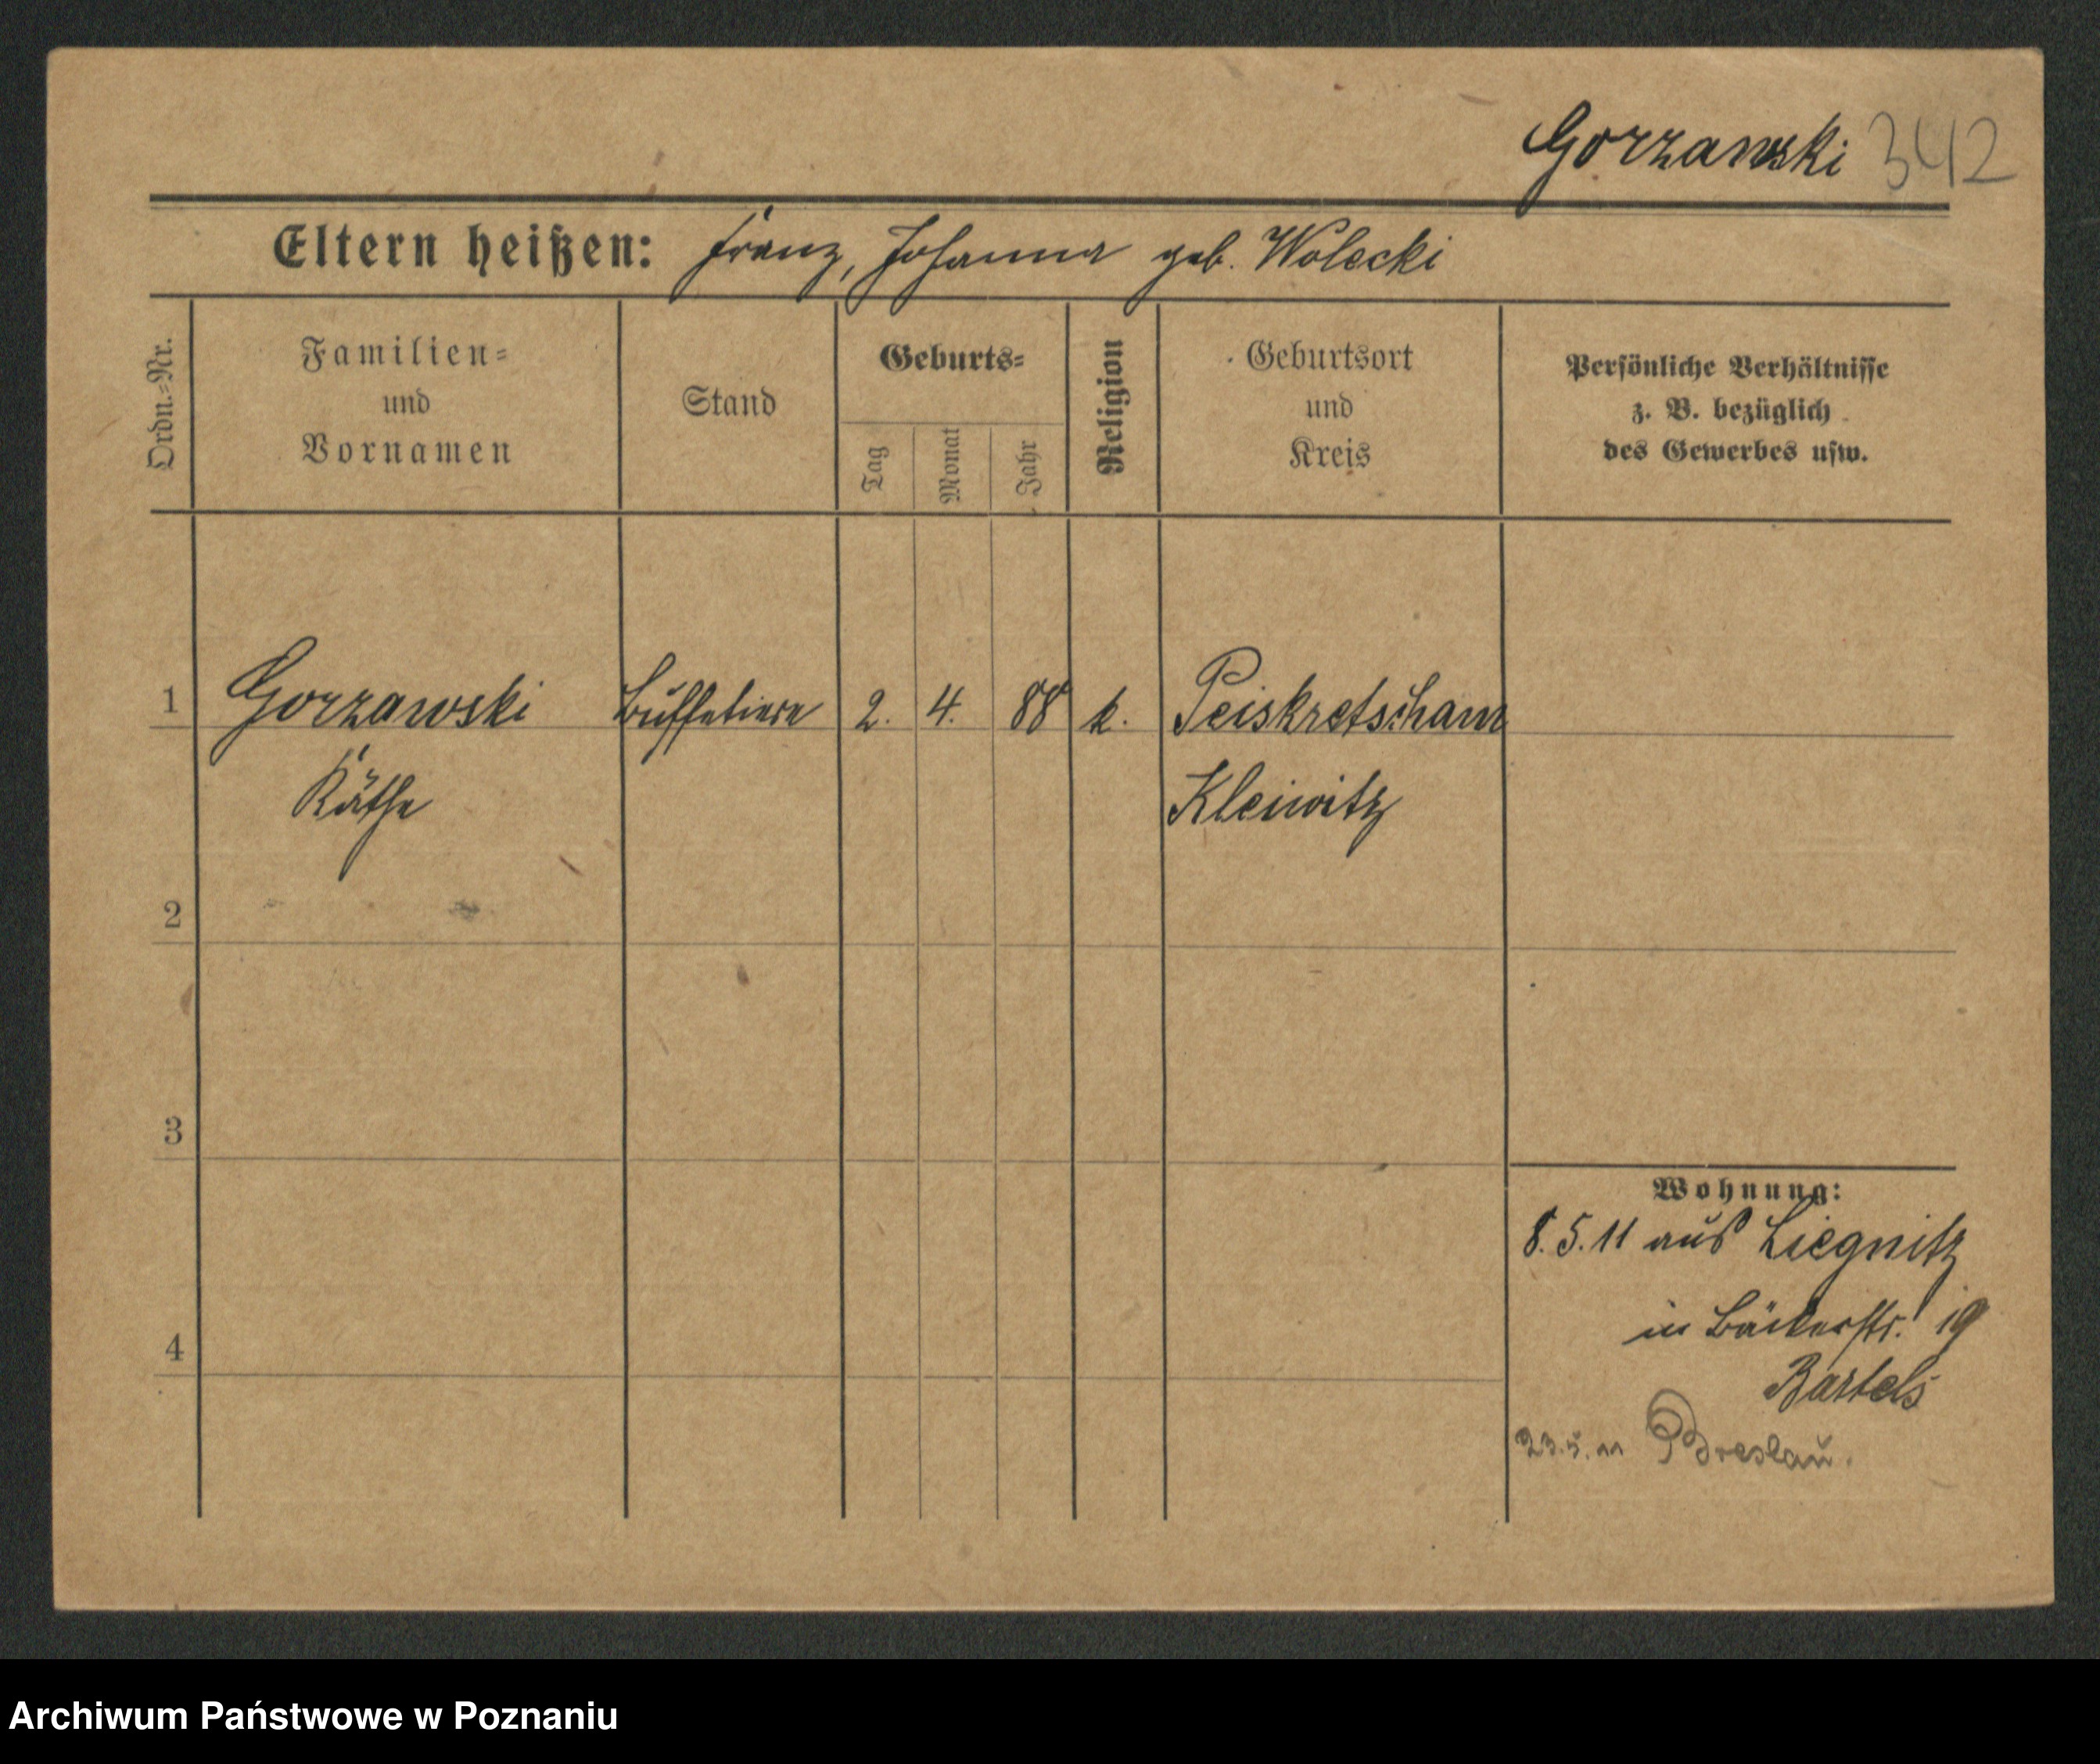 Gorzawski 342
Eltern heißen: Franz, Johanna geb. Wolecki
Ordn.-Nr.
Familien-
und
Vornamen
Stand
Geburts-
Tag
Monat
Jahr
Religion
Geburtsort
und
Kreis
Persönliche Verhältnisse
z. B. bezüglich
des Gewerbes usw.
1 Gorzawski Buffetiere 2. 4. 88 k. Peiskretscham
Käthe Kleiwitz
2
3
Wohnung:
8.5.11 aus Liegnitz
in Bäckerstr. 19
4
Bartels
23.5.11 Breslau.
Archiwum Państwowe w Poznaniu